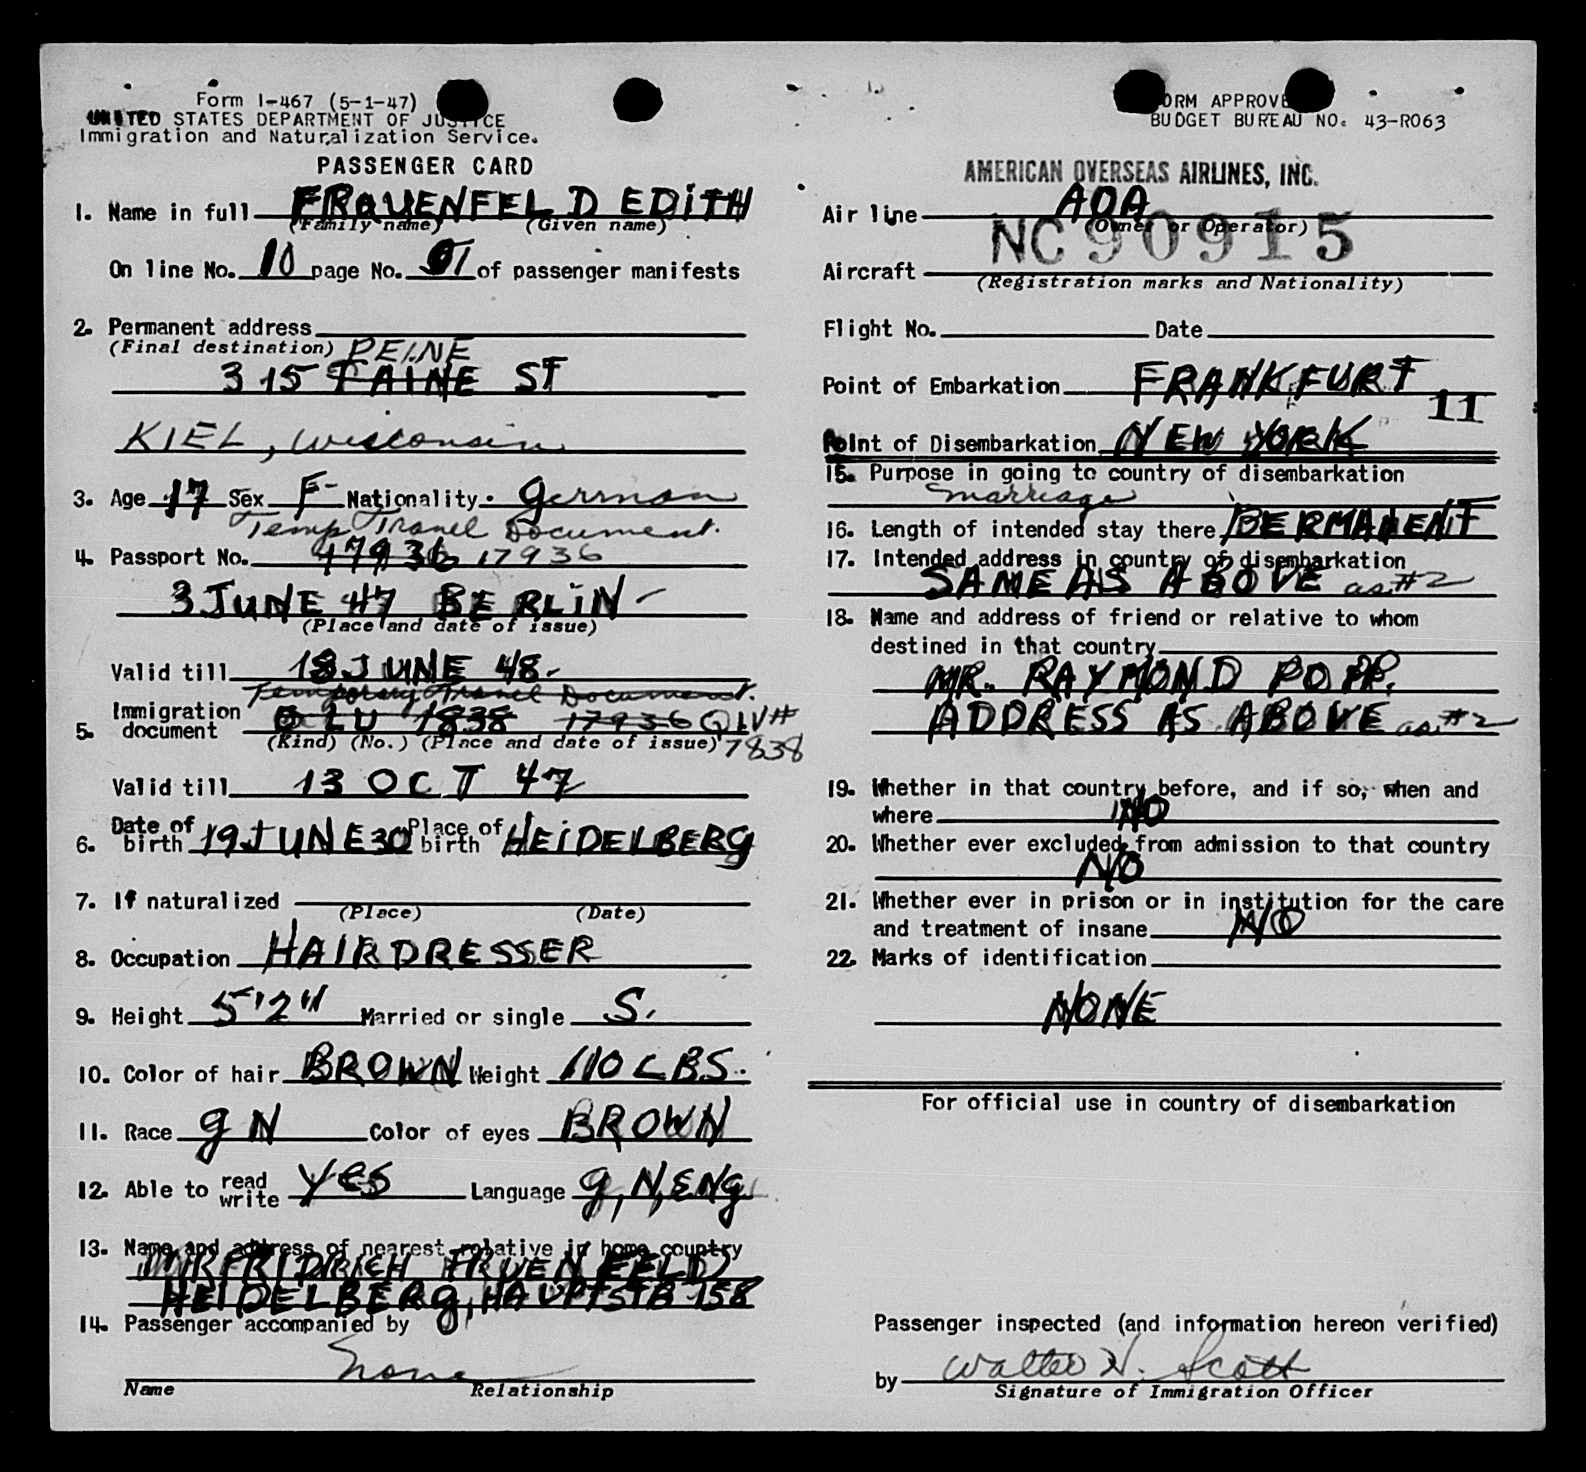 Form I-467 (5-1-47)
UNITED STATES DEPARTMENT OF JUSTICE
Immigration and Naturalization Service.
PASSENGER CARD
1. Name in full FRAUENFELD EDITH
(Family name) (Given name)
On line No. 10 page No. 01 of passenger manifests
2. Permanent address
(Final destination) PEINE
315 TAINE ST
KIEL, Wisconsin
3. Age 17 Sex F Nationality. German
Temp Travel Document.
4. Passport No. 17936 17936
3 JUNE 47 BERLIN -
(Place and date of issue)
Valid till 18 JUNE 48.
Temporary Travel Document.
5. Immigration document 1838 17936 QIV#
(Kind) (No.) (Place and date of issue) 7838
Valid till 13 OCT 47
6. Date of birth 19 JUNE 30 Place of birth HEIDELBERG
7. If naturalized
(Place) (Date)
8. Occupation HAIRDRESSER
9. Height 5'2" Married or single S.
10. Color of hair BROWN Weight 110 LBS.
11. Race GN Color of eyes BROWN
12. Able to read write YES Language G,N,ENG
13. Name and address of nearest relative in home country
MR FRIDRICH FRUENFELD
HEIDELBERG, HAUPTSTB 158
14. Passenger accompanied by
None
Name Relationship
FORM APPROVE
BUDGET BUREAU NO. 43-R063
AMERICAN OVERSEAS AIRLINES, INC.
Air line AOA
(Owner or Operator)
Aircraft NC90915
(Registration marks and Nationality)
Flight No. Date
Point of Embarkation FRANKFURT
11
Point of Disembarkation NEW YORK
15. Purpose in going to country of disembarkation
marriage
16. Length of intended stay there PERMANENT
17. Intended address in country of disembarkation
SAME AS ABOVE as #2
18. Name and address of friend or relative to whom
destined in that country
MR. RAYMOND POPP.
ADDRESS AS ABOVE as #2
19. Whether in that country before, and if so, when and
where NO
20. Whether ever excluded from admission to that country
NO
21. Whether ever in prison or in institution for the care
and treatment of insane NO
22. Marks of identification
NONE
For official use in country of disembarkation
Passenger inspected (and information hereon verified)
by Walter N. Scott
Signature of Immigration Officer